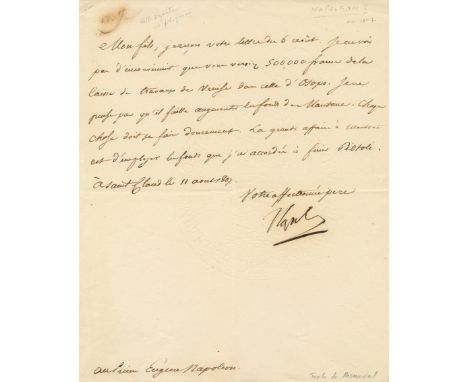 NAPOLEON I
Mon fils, je reçois votre lettre du 6 août. Je ne vois
pas d'inconvénient que vous versiez 500000 francs de la
Caisse des travaux de Venise dans celle d'Osopo. Je ne
pense pas qu'il faille augmenter les fonds de Mantoue. Chaque
chose doit se faire doucement. La grande affaire à
est d'employer les fonds que j'ai accordés à finir
à Saint Cloud le 11 août 1807.
Votre affectionné pere
Nap
au Prince Eugène Napoleon.